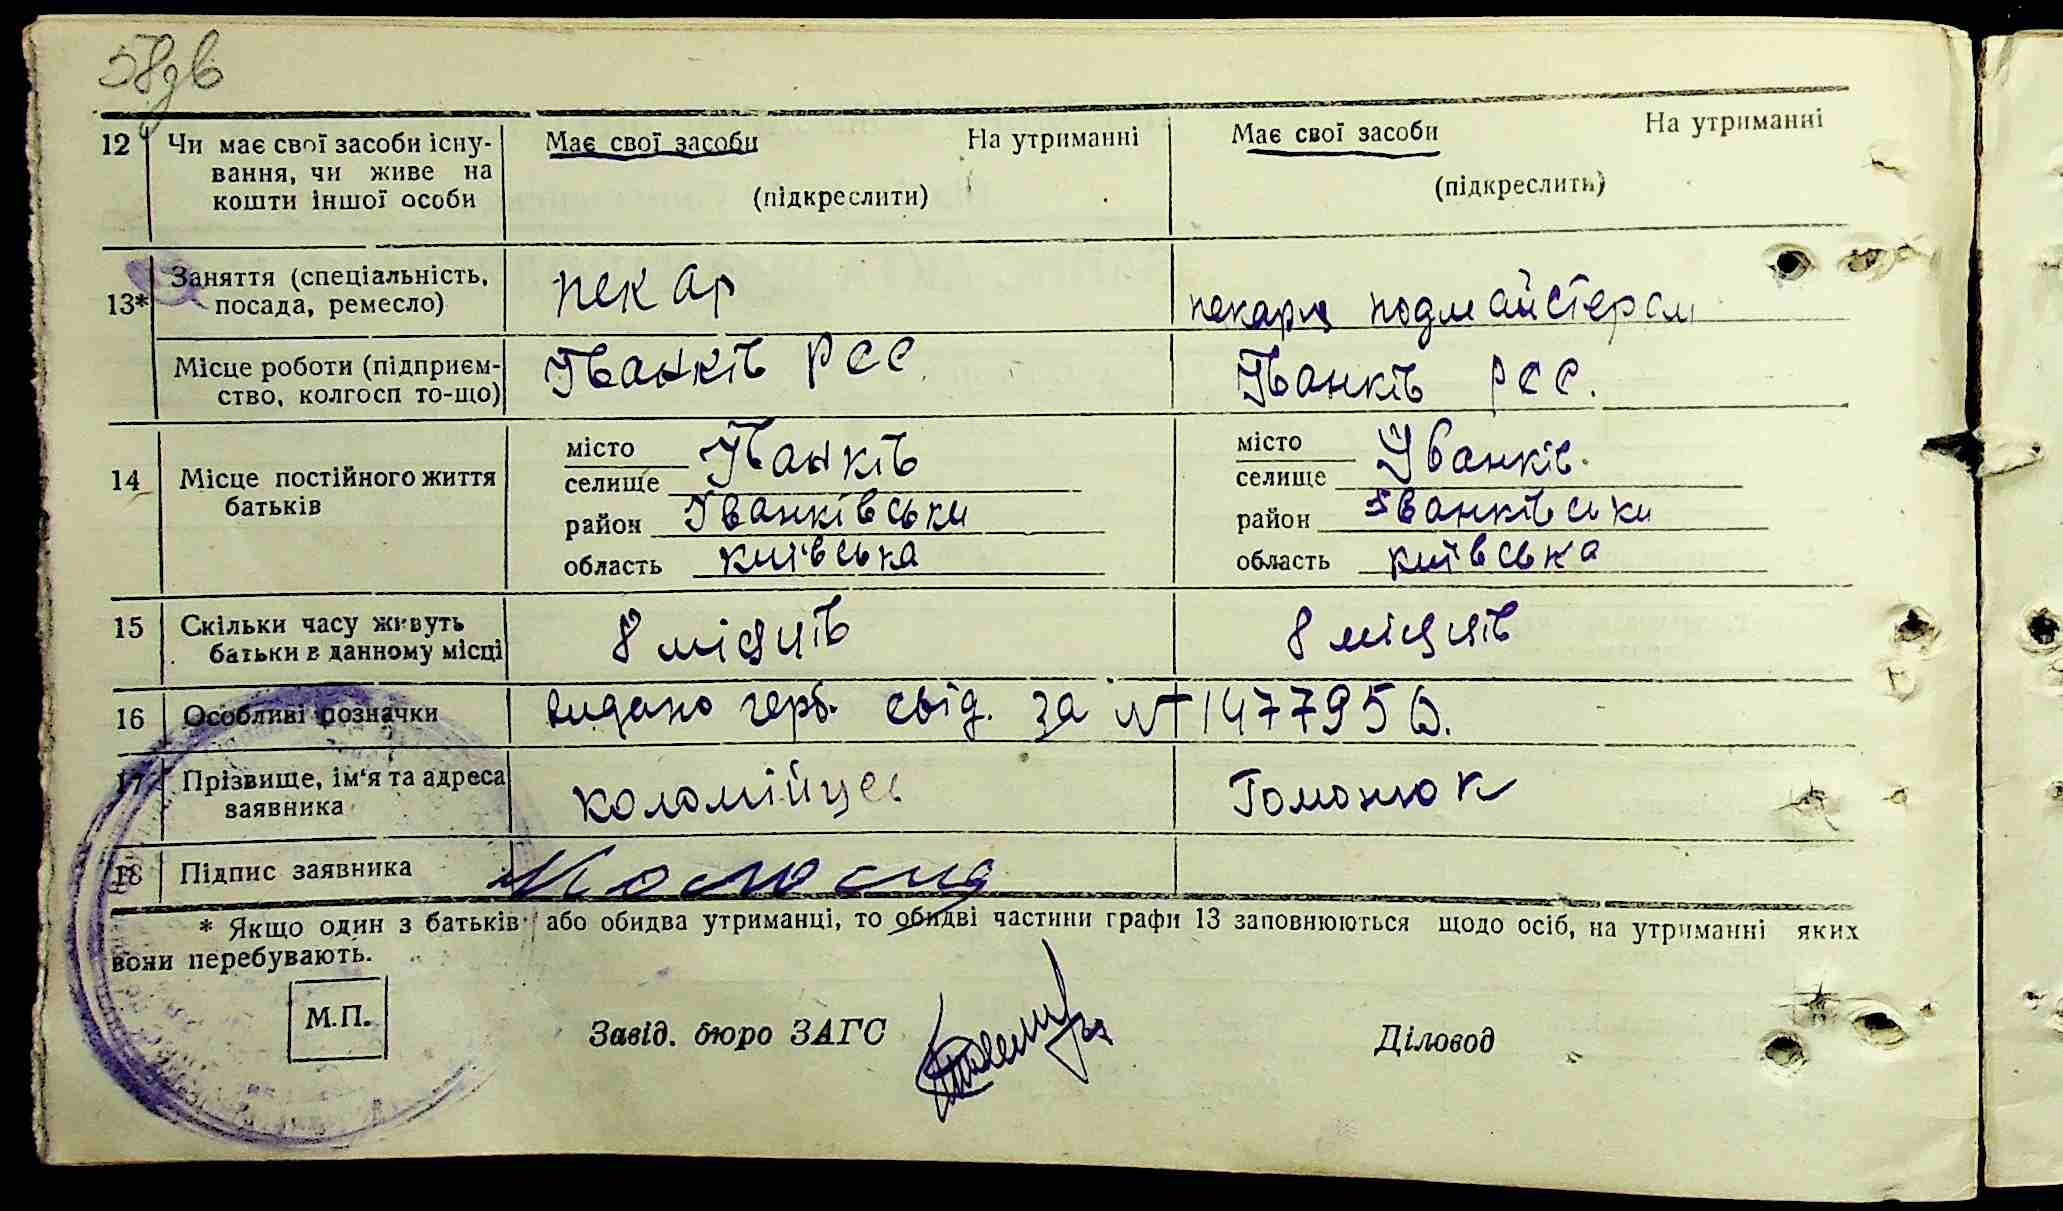 58зв
12 Чи має свої засоби існу- Має свої засоби На утриманні Має свої засоби На утриманні
вання, чи живе на
кошти іншої особи (підкреслити) (підкреслити)
13* Заняття (спеціальність, пекар пекарц подмайстером
посада, ремесло)
Місце роботи (підприєм- Іванків РСС Іванків РСС.
ство, колгосп то-що)
14 Місце постійного життя місто Іванків місто Іванків
батьків селище селище
район Іванківськи район Іванківськи
область київська область київська
15 Скільки часу живуть 8 місяців 8 місяців
батьки в данному місці
16 Особливі позначки видано герб. свід. за № 1477950.
17 Прізвище, ім'я та адреса коломійцев Гомонюк
заявника
18 Підпис заявника
* Якщо один з батьків або обидва утриманці, то обидві частини графи 13 заповнюються щодо осіб, на утриманні яких
вони перебувають.
М.П.
Завід. бюро ЗАГС Діловод